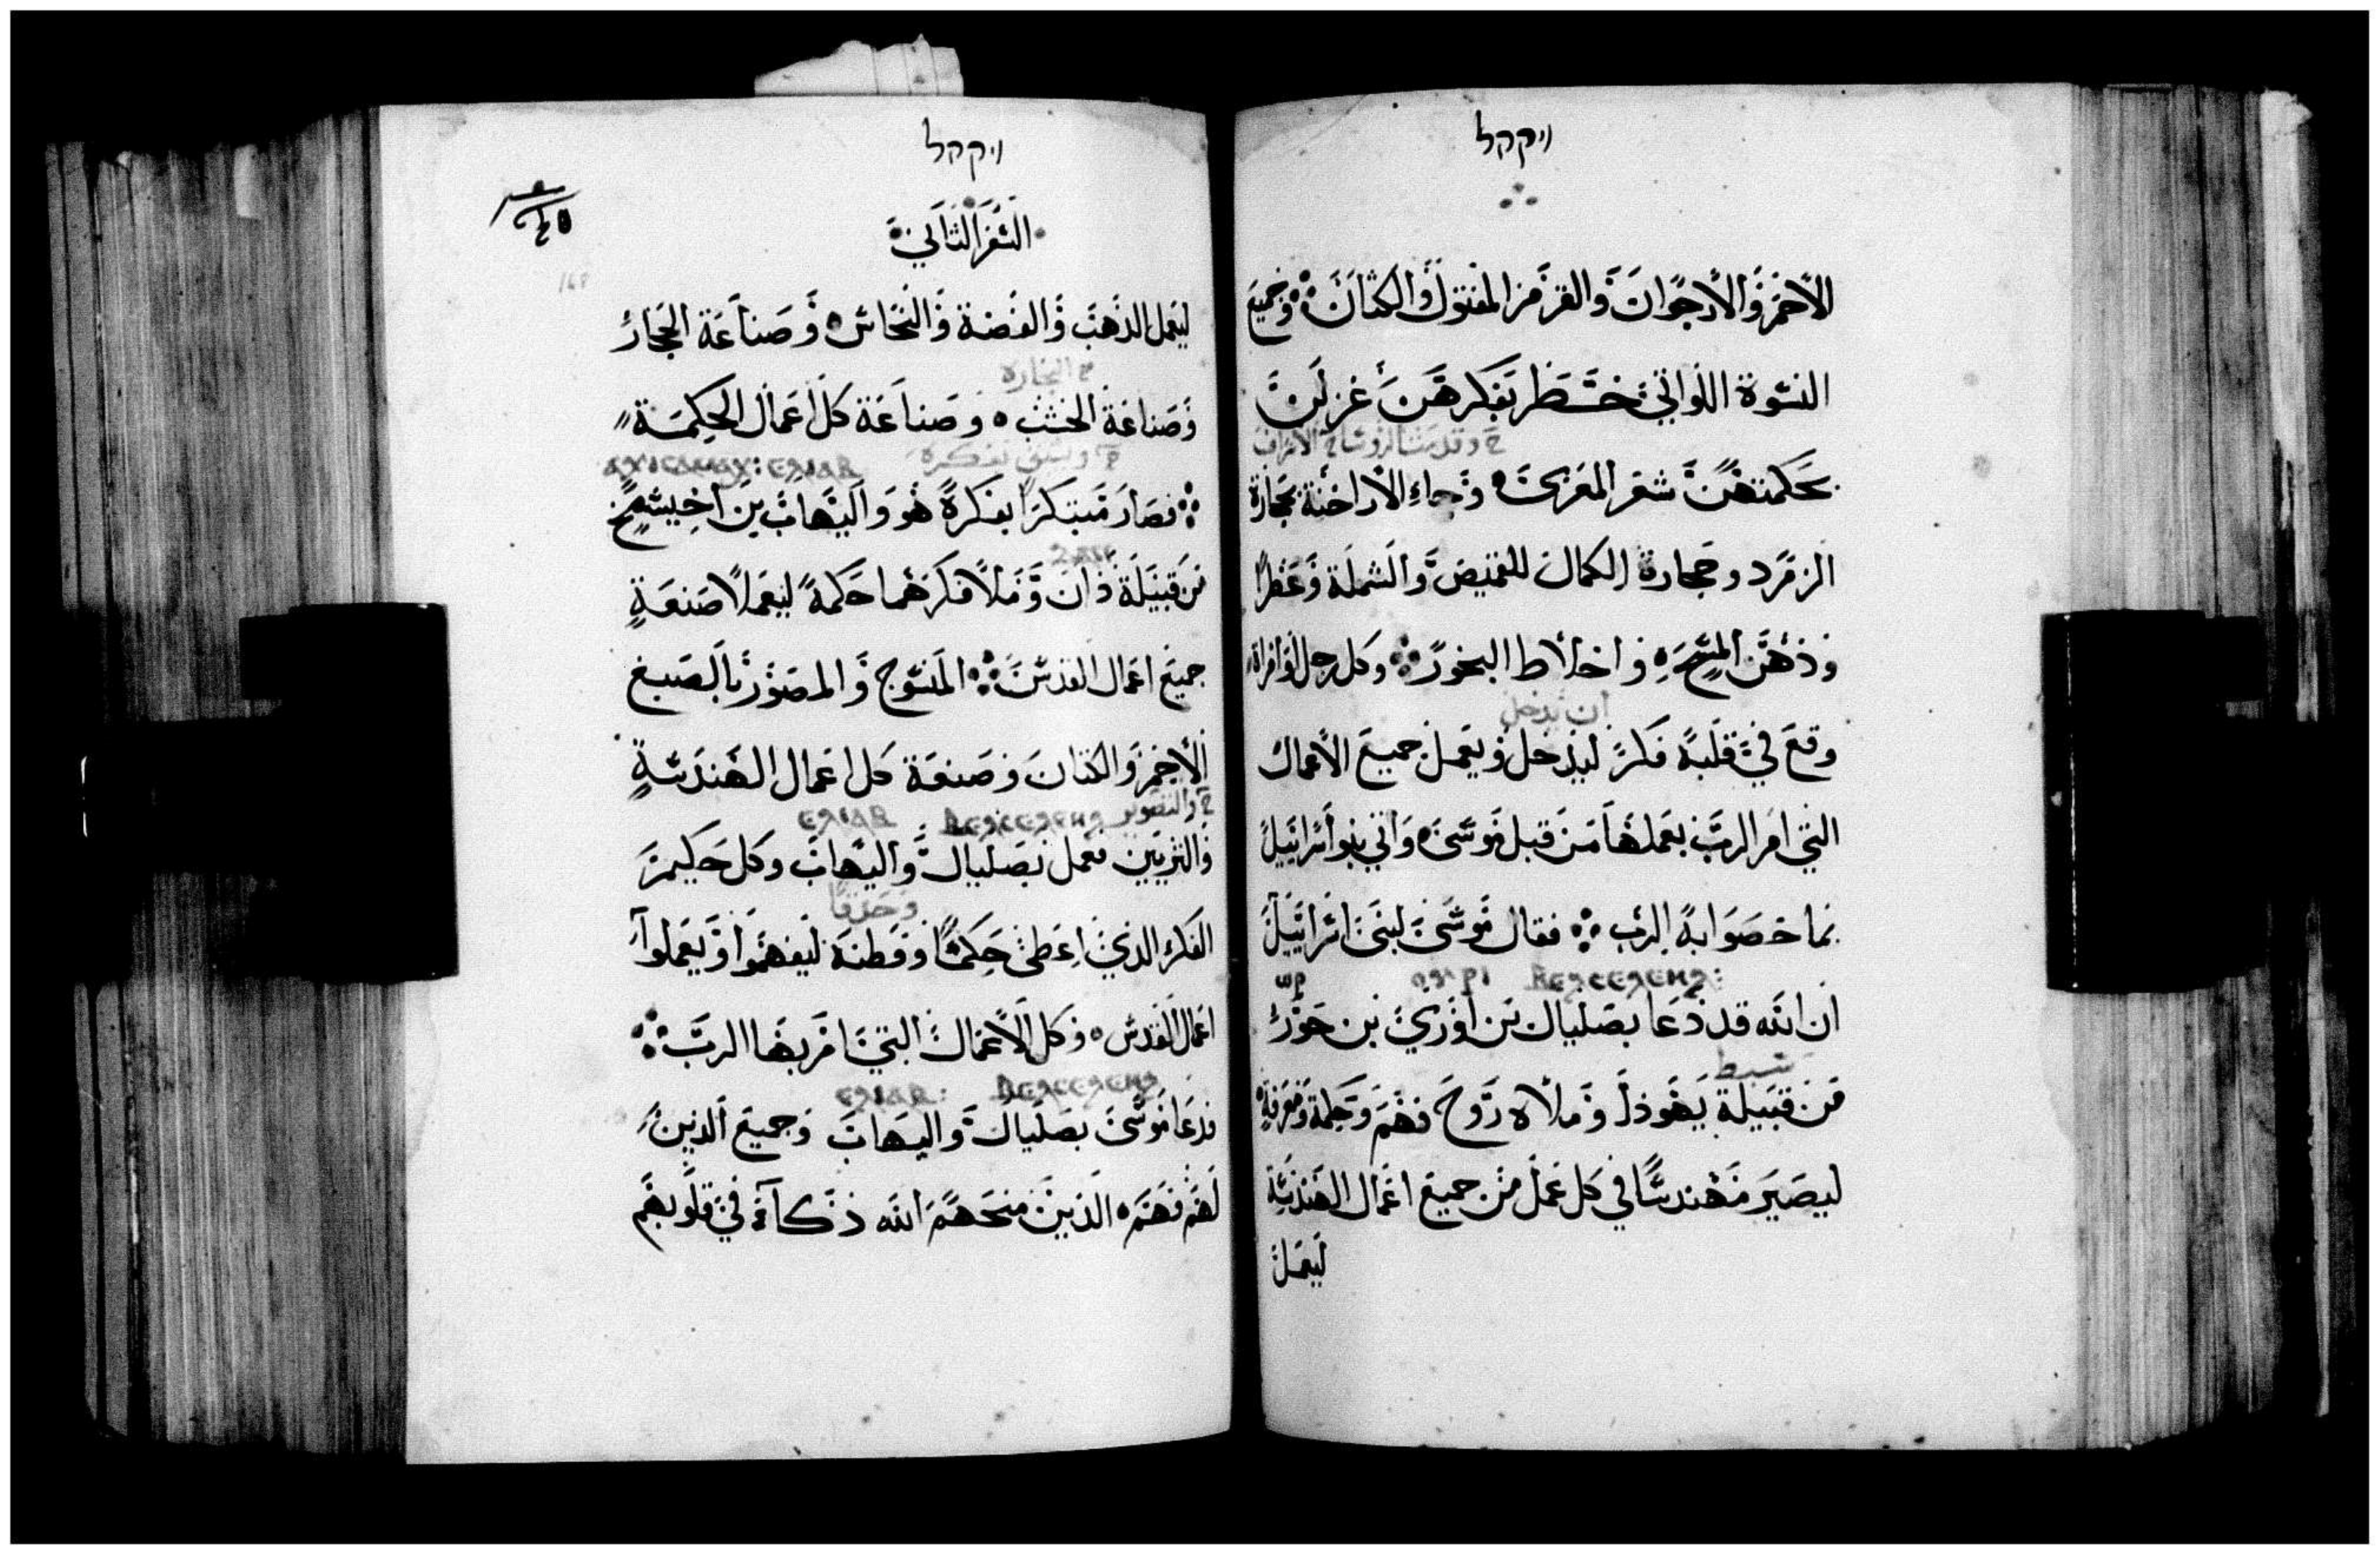 ויקהל
الاحمر والارجوان والقرمز المفتول والكتان وجميع
النسوة اللواتي خطر بفكرهن غزلن
بحكمتهن شعر المعزى وجاء الاراخنة بحجارة
الزمرد وحجارة الكمال للقميص والشملة وعطرا
ودهن المسحه واخلاط البخور وكل رجل وامراة
ان يدخل
وقع في قلبه فكر ليدخل ويعمل جميع الاعمال
التي امر الرب بعملها من قبل موسى واتي بنو اسرائيل
بما خصوا به الرب فقال موسى لبني اسرائيل
ان الله قد دعا بصليال بن اوري بن حور
سبط
من قبيلة يهوذا وملاه روح فهم وحكمة ومعرفة
ليصير مهندسا في كل عمل من جميع اعمال الهندسة
ليعمل
ויקהל
السفر الثاني
ليعمل الذهب والفضة والنحاس وصناعة الحجار
وصناعة الخشب وصناعة كل اعمال الحكمة
فصار مبتكرا بفكره هو واليهاب بن اخيسمخ
من قبيلة دان وملا فكرهما حكمة ليعملا صنعة
جميع اعمال القدس المنسوج والمصور بالصبغ
الاحمر والكتان وصنعة كل اعمال الهندسة
والتصوير
والتزيين فعمل بصليال واليهاب وكل حكيم
وحذقا
الفكر الذي اعطي حكما وفطنة ليفهموا ويعملوا
اعمال القدس وكل الاعمال التي امر بها الرب
فدعا موسى بصليال واليهاب وجميع الذين
لهم فهم الذين منحهم الله ذكاء في قلوبهم